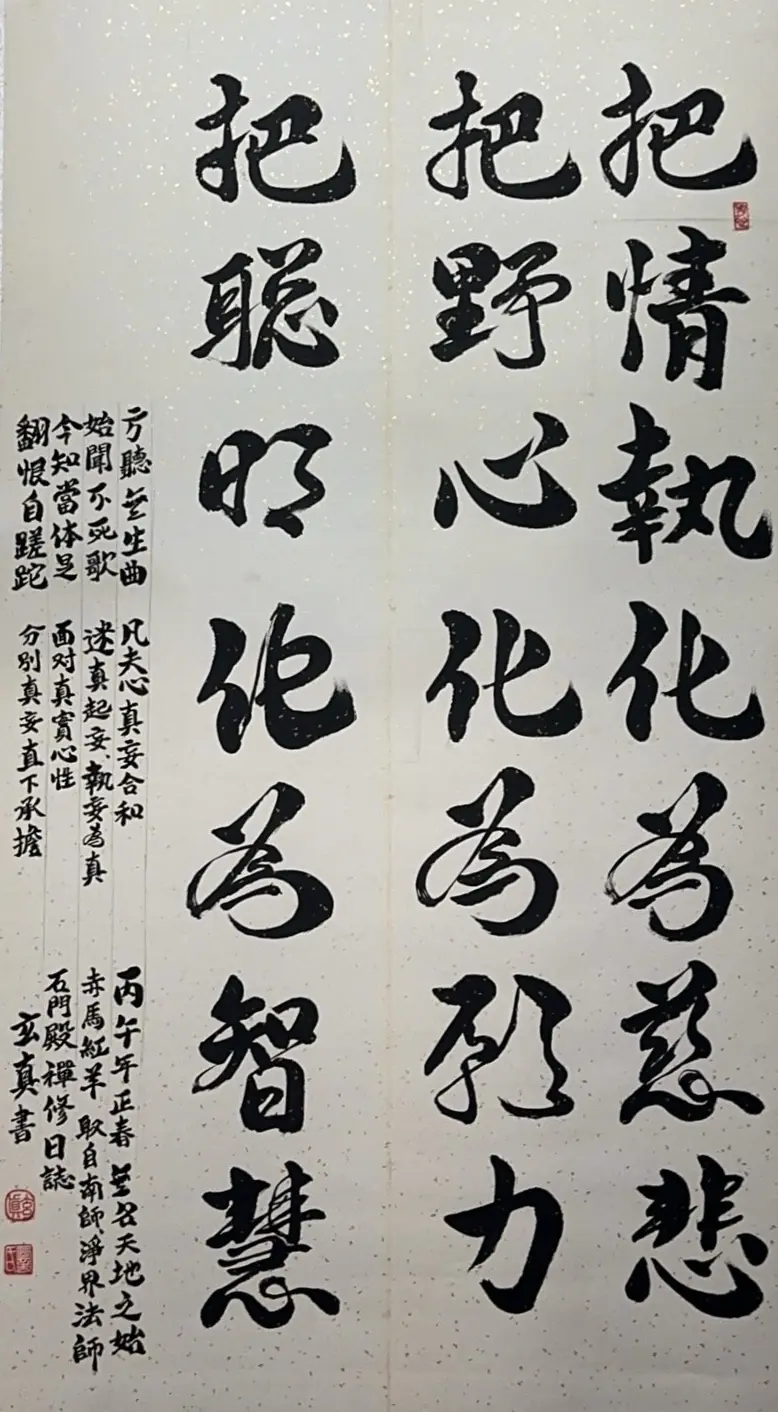 把情執化為慈悲
把野心化為願力
把聪明化為智慧
方聽無生曲
始聞不死歌
今知當体是
翻恨自蹉跎
凡夫心真妄合和
迷真起妄、執妄為真
面对真實心性
分别真妄直下承擔
丙午年正春 無名天地之始
赤馬紅羊 取自南師淨界法師
石門殿禪修日誌
玄真書